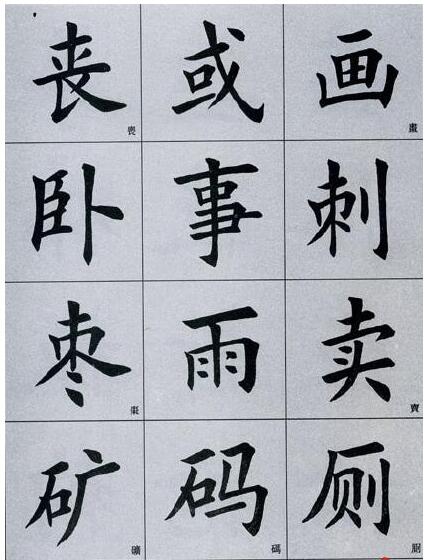 丧 或 画
喪 畫
卧 事 刺
枣 雨 卖
棗 賣
矿 码 厕
礦 碼